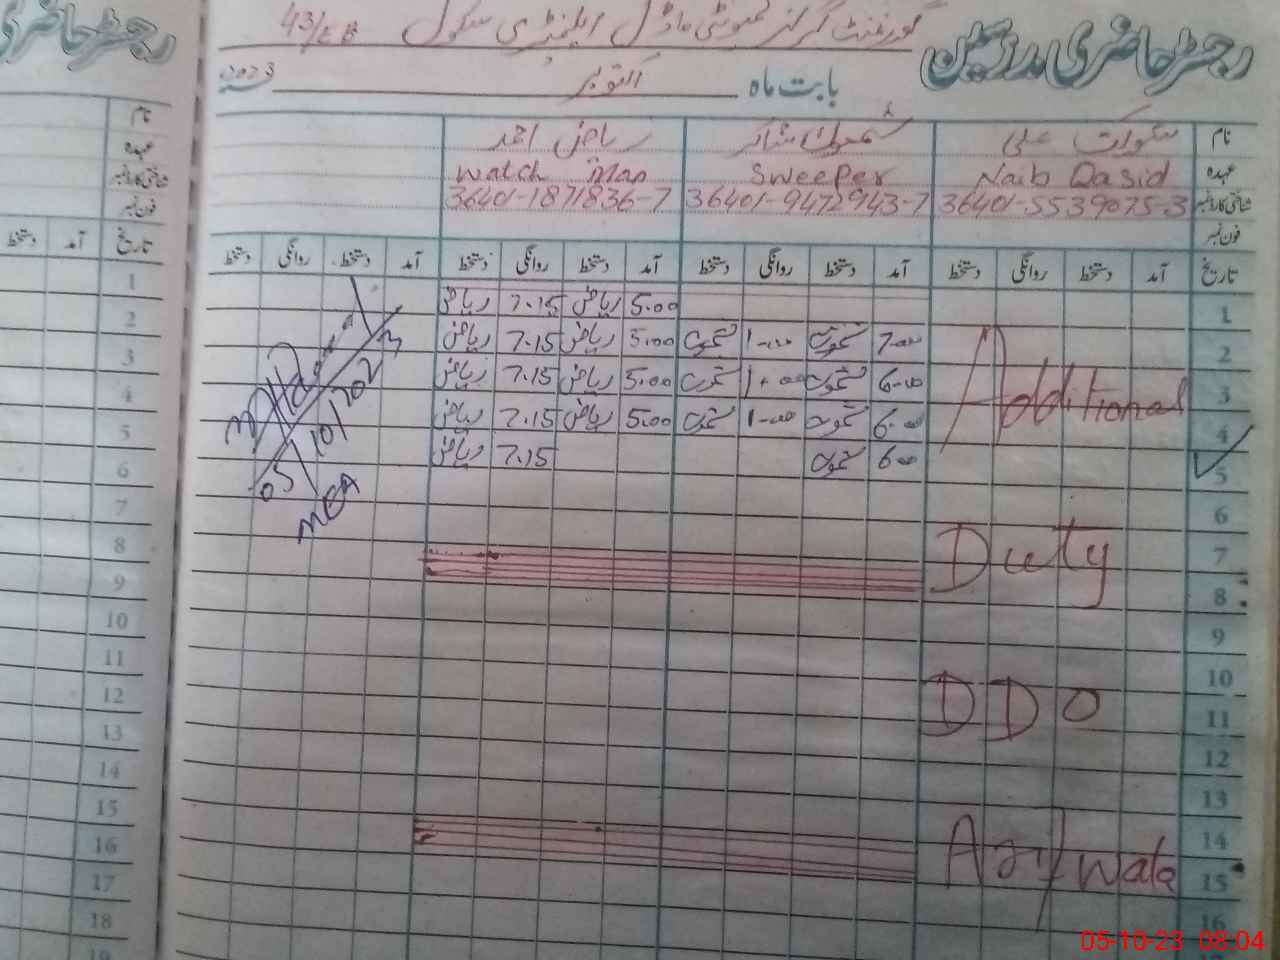 رجسٹر حاضری
رجسٹر حاضری مدرسین
گورنمنٹ گرلز کمیونٹی ماڈل ایلیمنٹری سکول 43/EB
بابت ماہ اکتوبر 2023
نام شوکت علی ریاض احمد
عہدہ Naib Qasid Sweeper Watch Man
شناختی کارڈ نمبر 36401-5539075-3 36401-9472943-7 36401-1871836-7
فون نمبر
تاریخ آمد دستخط روانگی دستخط آمد دستخط روانگی دستخط آمد دستخط روانگی دستخط آمد دستخط روانگی دستخط
1 5.00 ریاض 7.15 ریاض
2 7-00 1-00 5.00 ریاض 7.15 ریاض
3 6-00 1-00 5.00 ریاض 7.15 ریاض
4 6-00 1-00 5.00 ریاض 7.15 ریاض
5 6-00 7.15 ریاض
Additional
6
7
Duty
8
9
10
DDO
11
12
13
14
15
Arifwala
16
05/10/2023
MEA
نام
عہدہ
شناختی کارڈ نمبر
فون نمبر
تاریخ آمد دستخط
1
2
3
4
5
6
7
8
9
10
11
12
13
14
15
16
17
18
19
05-10-23 08:04